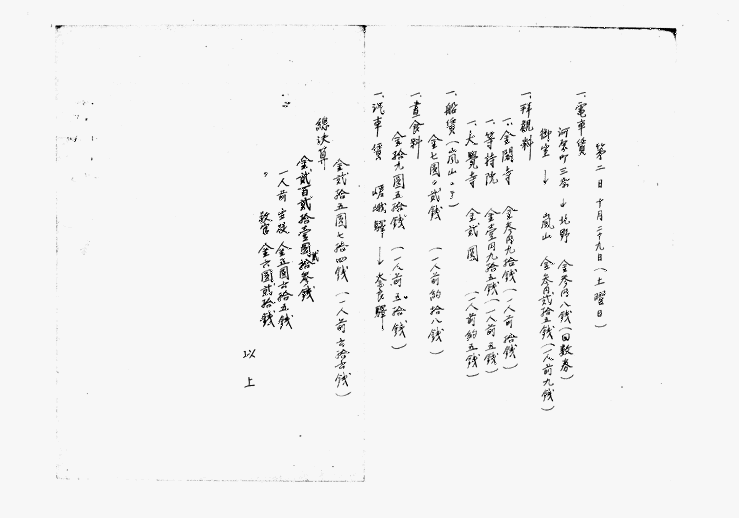 第二日 十月二十九日(土曜日)
一、電車賃
河原町三条→北野 金参円八銭(回数券)
御室→嵐山 金参円弐拾五銭(一人前九銭)
一、拝観料
一、金閣寺 金参円九拾銭(一人前拾銭)
一、等持院 金壹円九拾五銭(一人前五銭)
一、大覺寺 金弐圓 (一人前約五銭)
一、船賃(嵐山ヨリ)
金七圓〃弐銭 (一人前約拾八銭)
一、晝食料
金拾九圓五拾銭 (一人前五拾銭)
一、汽車賃 嵯峨驛→奈良驛
金弐拾五圓七拾四銭 (一人前六拾六銭)
總決算
金弐百弐拾壹圓拾参銭
一人前 生徒 金五圓六拾五銭
〃 教官 金六圓弐拾銭
以上